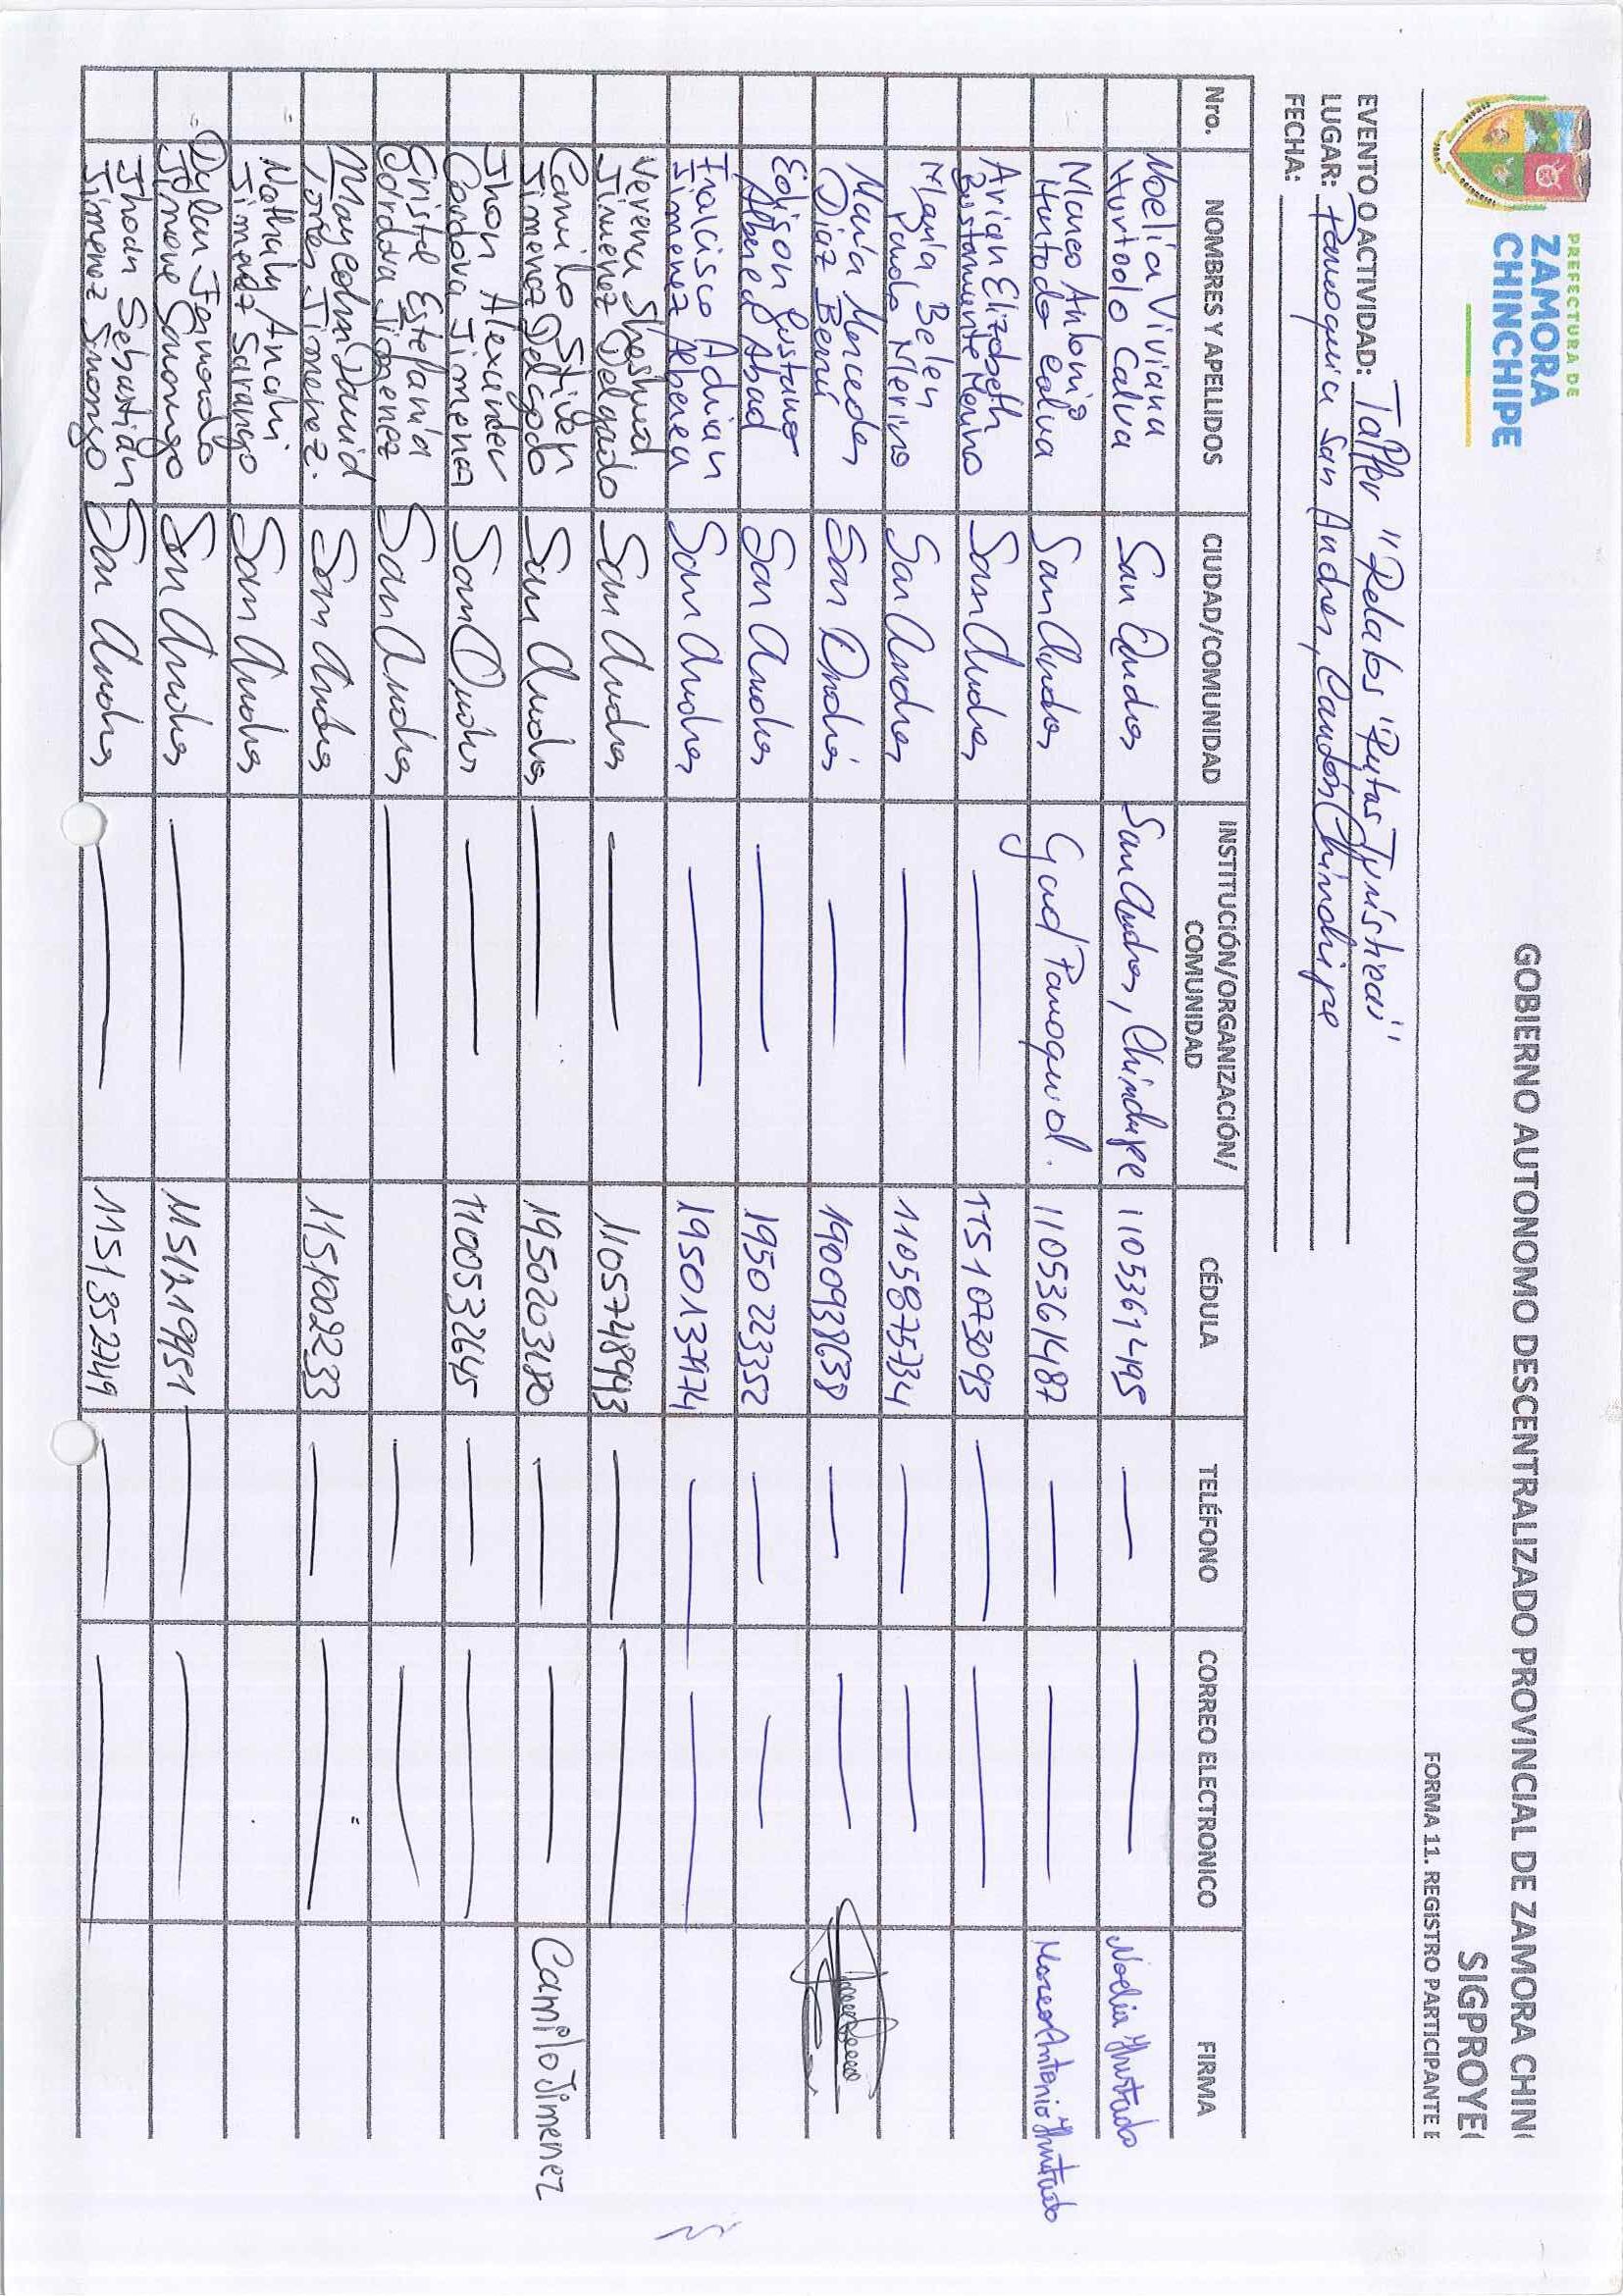 PREFECTURA DE
ZAMORA
CHINCHIPE
GOBIERNO AUTONOMO DESCENTRALIZADO PROVINCIAL DE ZAMORA CHIN
SIGPROYE
FORMA 11. REGISTRO PARTICIPANTE E
EVENTO O ACTIVIDAD: Taller "Relatos "Rutas Turísticas"
LUGAR: Parroquia San Andres, Cantón Chinchipe
FECHA:
Nro. NOMBRES Y APELIDOS CIUDAD/COMUNIDAD INSTITUCIÓN/ORGANIZACIÓN/ COMUNIDAD CÉDULA TELÉFONO CORREO ELECTRONICO FIRMA
Noelia Viviana
Hurtado Calva San Andres San Andres, Chinchipe 1105361495 — — Noelia Hurtado
Marco Antonio
Hurtado Calva San Andres Gad Parroquial. 1105361487 — — Marco Antonio Hurtado
Arian Elizabeth
Bustamente Merino San Andres — 1151073093 — —
María Belen
Pardo Merino San Andres — 1105875734 — —
María Mercedes
Diaz Berrú San Andrés — 1900938638 — —
Edison Gustavo
Alberca Abad San Andres — 1950223352 — —
Fralcisco Adrian
Jimenez Alberca San Andres — — —
Verena
Jimenez Delgado San Andres — 1105748943 — —
Camilo Stiven
Jimenez Delgado San Andres — 1950203180 — — Camilo Jimenez
Jhon Alexander
Cordova Jimenez San Andres — 1100532645 — —
Cristel Estefanía
Cordova Jimenez San Andres — — —
David
Jimenez. San Andres 1151002233 — —
Nathaly Anahi
Jimenez Sarango San Andres
Dylan Fernando
Jimene Sarango San Andres — 1151219951 — —
Jhoan Sebastián
Jimenez Sarango San Andres — 1151352749 — —